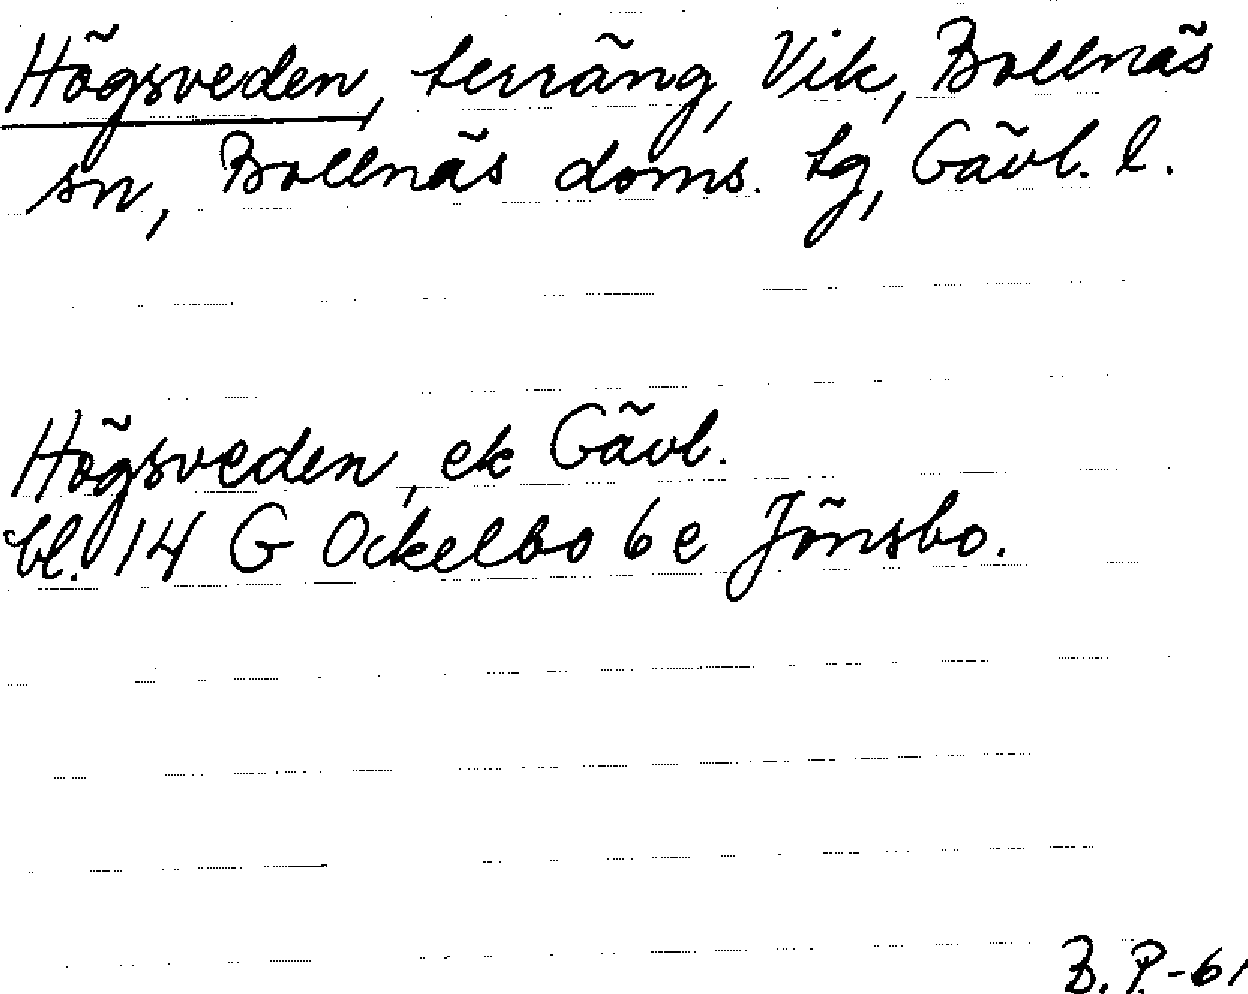 Högsveden, terräng, Vik, Bollnäs
sn, Bollnäs doms. tg, Gävl. l.
Högsveden, ek Gävl.
bl. 14 G Ockelbo 6 e Jönsbo.
B. P.-61